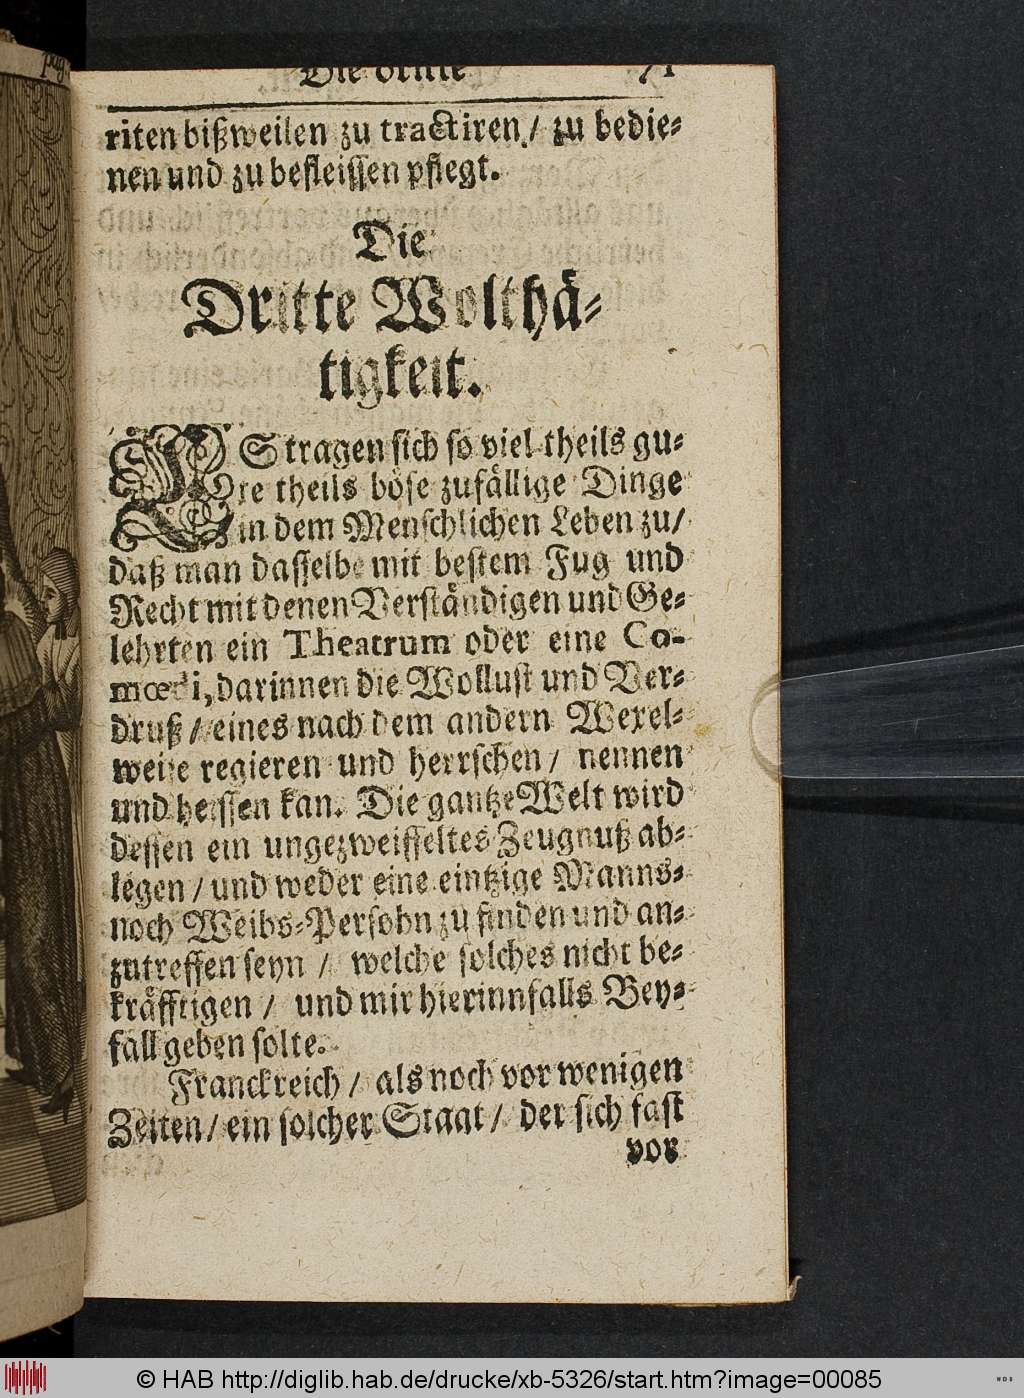 Die dritte 71
riten bißweilen zu tractiren / zu bedie⸗
nen und zu befleissen pflegt.
Die
Dritte Wolthä⸗
tigkeit.
ES tragen sich so viel theils gu⸗
te theils böse zufällige Dinge
in dem Menschlichen Leben zu /
daß man dasselbe mit bestem Fug und
Recht mit denen Verständigen und Ge⸗
lehrten ein Theatrum oder eine Co-
mœdi, darinnen die Wollust und Ver⸗
druß / eines nach dem andern Wexel⸗
weise regieren und herrschen / nennen
und heissen kan. Die gantze Welt wird
dessen ein ungezweiffeltes Zeugnuß ab⸗
legen / und weder eine eintzige Manns⸗
noch Weibs⸗Persohn zu finden und an⸗
zutreffen seyn / welche solches nicht be⸗
kräfftigen / und mir hierinnfalls Bey⸗
fall geben solte.
Franckreich / als noch vor wenigen
Zeiten / ein solcher Staat / der sich fast
vor
pag.
© HAB http://diglib.hab.de/drucke/xb-5326/start.htm?image=00085